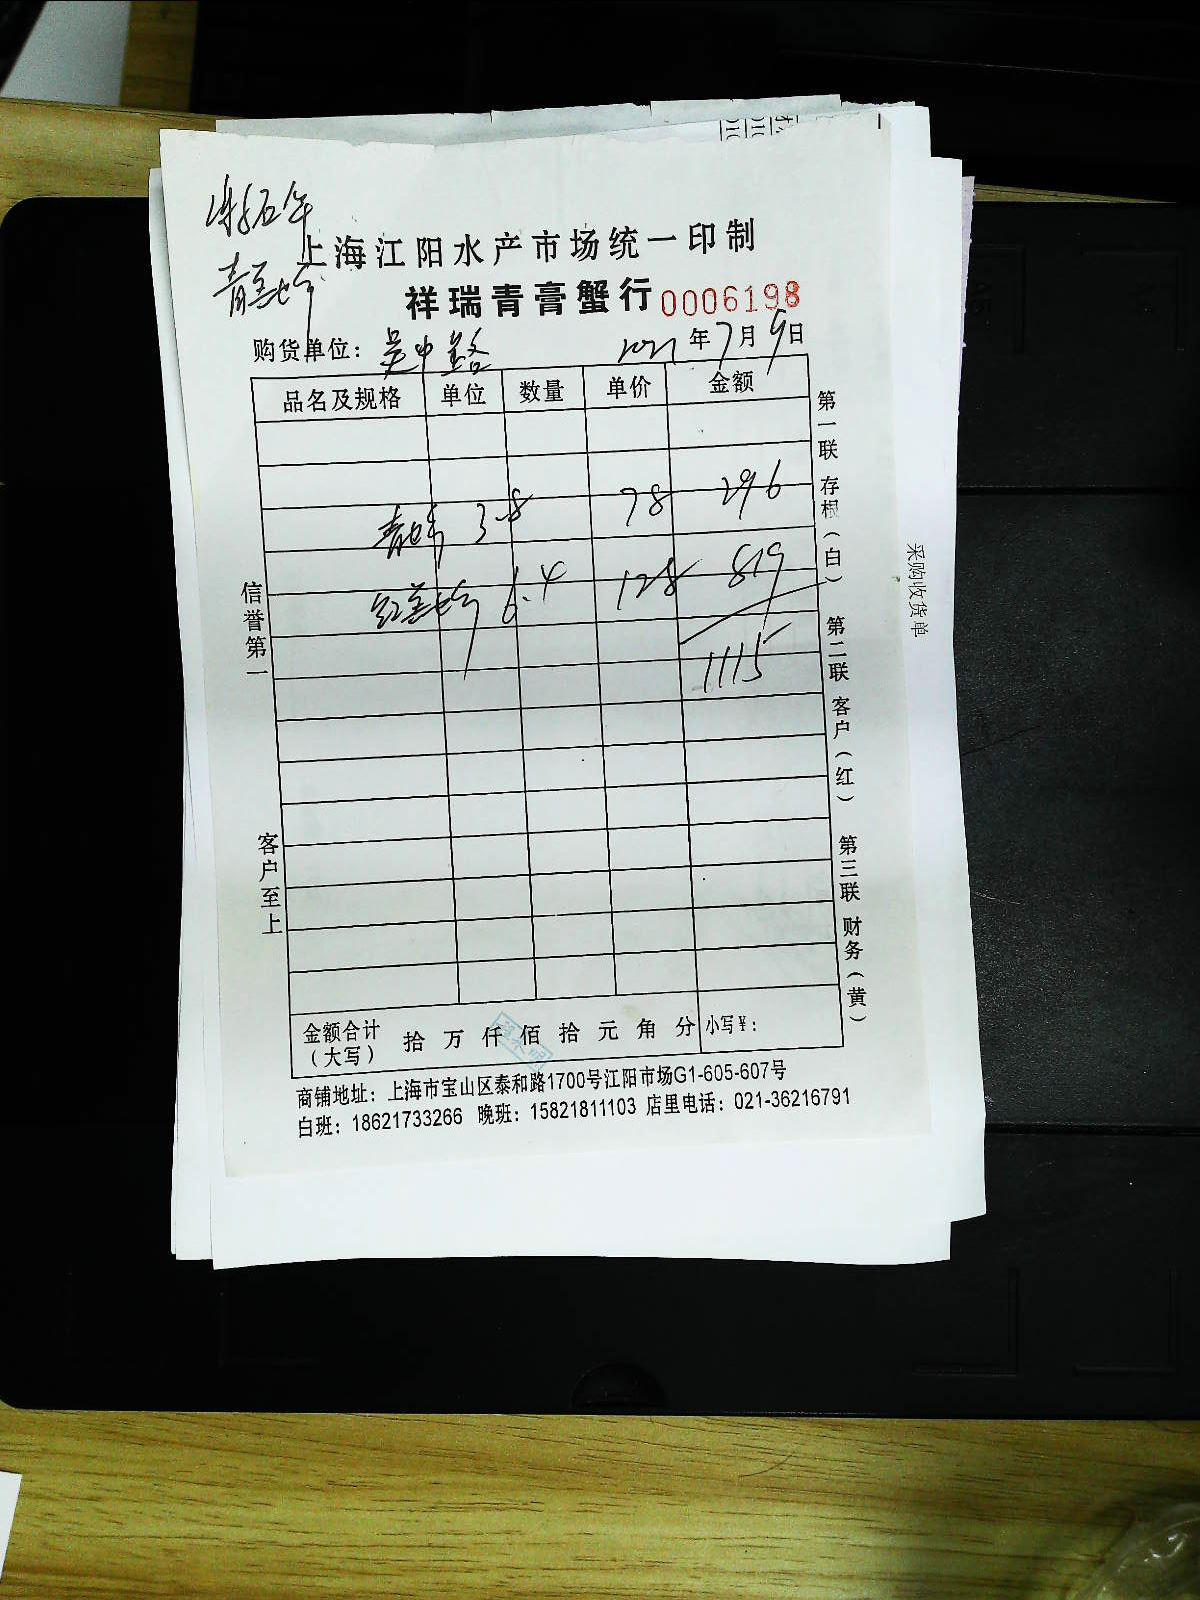 上海江阳水产市场统一印制
祥瑞青膏蟹行 0006198
购货单位： 吴中路 2021 年 7 月 9 日
品名及规格 单位 数量 单价 金额
3.8 78 296
6.4 128 819
1115
金额合计（大写） 拾 万 仟 佰 拾 元 角 分 小写¥：
商铺地址：上海市宝山区泰和路1700号江阳市场G1-605-607号
白班：18621733266 晚班：15821811103 店里电话：021-36216791
信誉第一
客户至上
第一联 存根（白） 第二联 客户（红） 第三联 财务（黄）
采购收货单